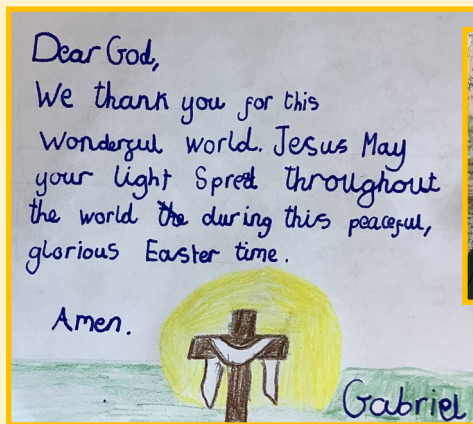 Dear God,
We thank you for this
Wonderful world. Jesus May
your light Spred throughout
the world the during this peaceful,
glorious Easter time.
Amen.
Gabriel